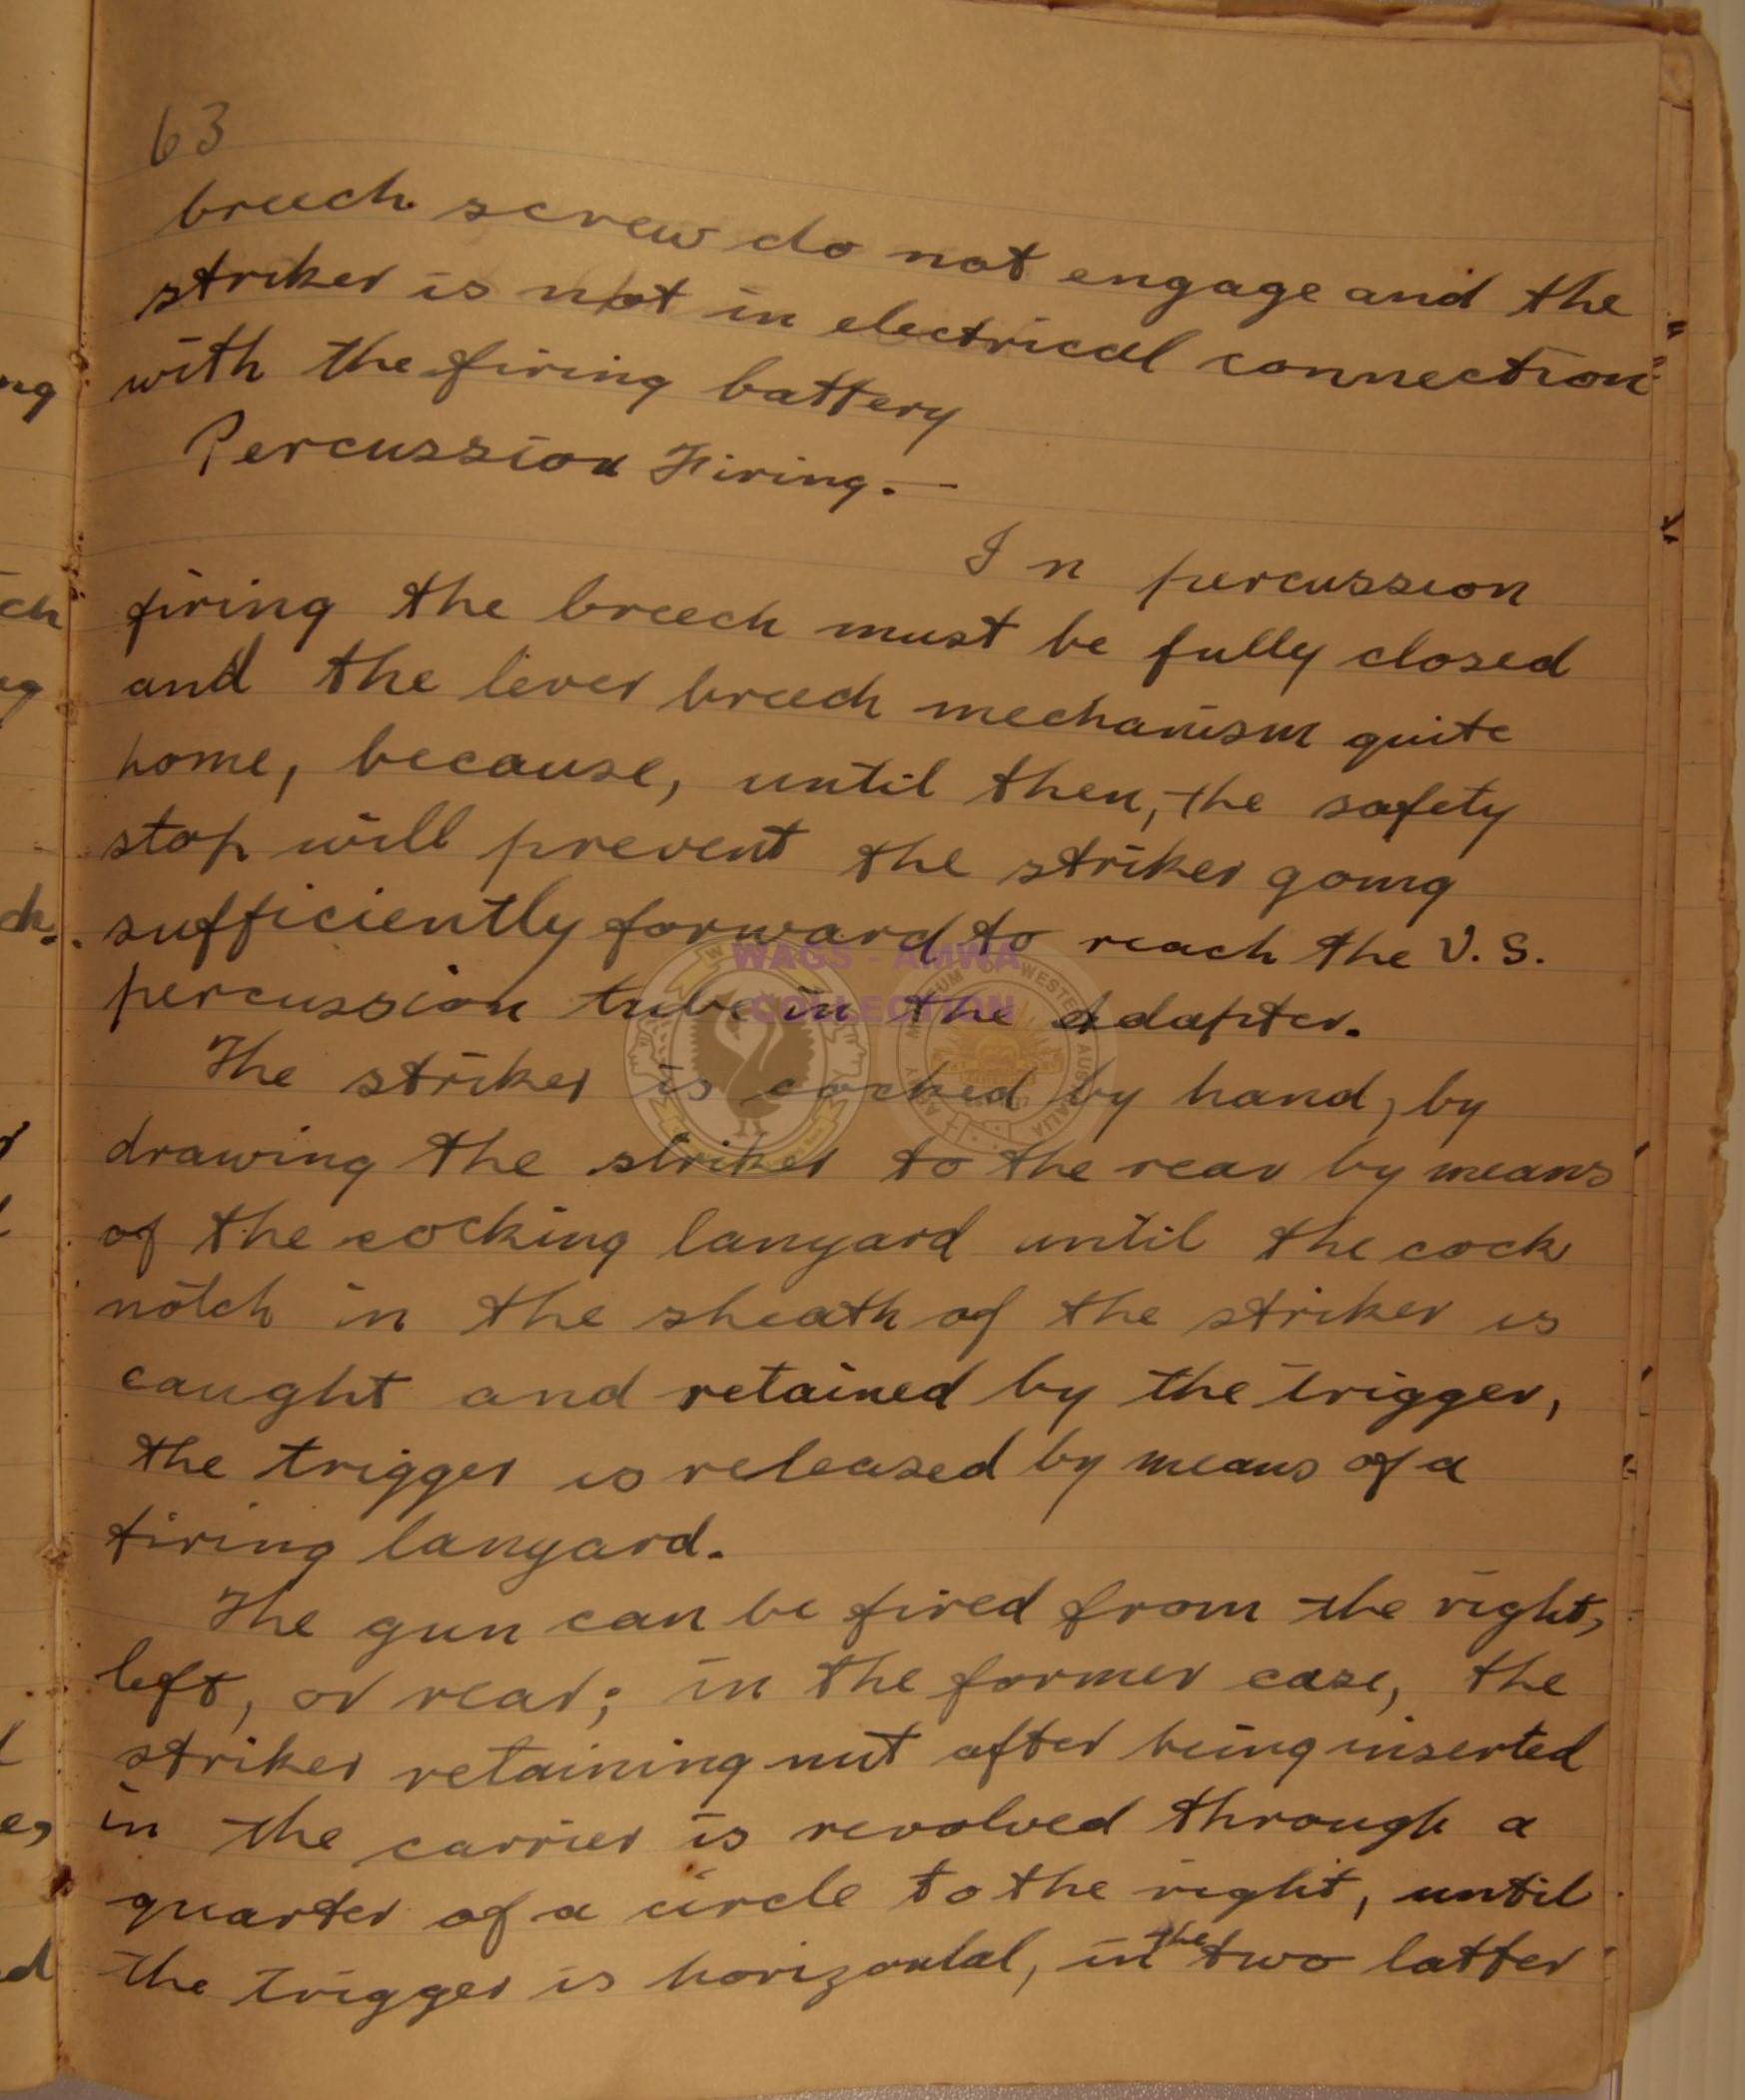 63
breech screw do not engage and the
striker is not in electrical connection
with the firing battery
Percussion Firing.—
In percussion
firing the breech must be fully closed
and the lever breech mechanism quite
home, because, until then, the safety
stop will prevent the striker going
sufficiently forward to reach the V.S.
percussion tube in the adapter.
The striker is cocked by hand, by
drawing the striker to the rear by means
of the cocking lanyard until the cock
notch in the sheath of the striker is
caught and retained by the trigger,
the trigger is released by means of a
firing lanyard.
The gun can be fired from the right,
left, or rear; in the former case, the
striker retaining nut after being inserted
in the carrier is revolved through a
quarter of a circle to the right, until
the trigger is horizontal, in the two latter
WAGS - AMWA
COLLECTION